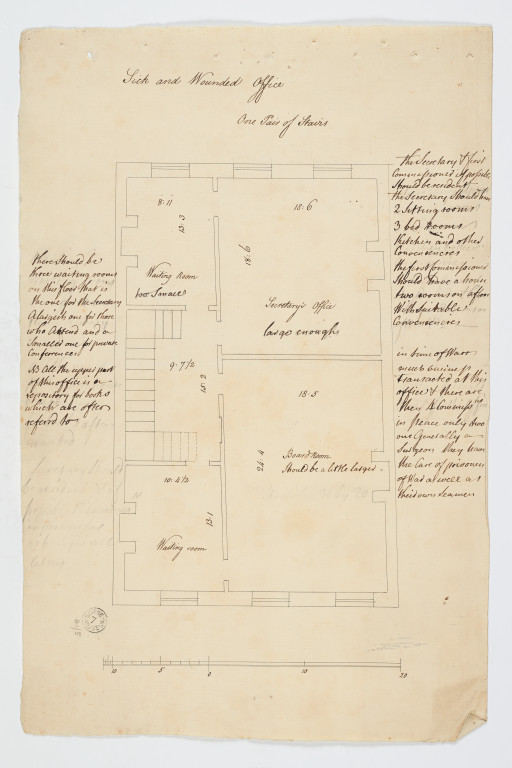 Sick and Wounded Office
One Pair of Stairs
the Secretary & first
Commissioner if possible
Should be resident
the Secretary Should have
2 Sitting rooms
3 bed Rooms
Kitchen and other
Conveniencies
the first Commissioner
Should have a house
two rooms on a floor
With Suitable
Conveniencies
in time of Warr
much business is
transacted at this
office & there are
then
in peace only two
one Generally a
Surgeon they have
the Care of prisoners
of War as well as
their own Seamen
there Should be
three waiting rooms
on this floor that is
the one for the Secretary
A large one for those
who Attend and a
Smaller one for private
Conference
NB All the upper part
of this office is a
repository for books
which are often
referd to
8:11
13:3
Waiting Room
too Small
18:6
18:6
Secretary's Office
large enough
9:7½
15:2
18:5
24:4
Board room
Should be a little larger
10:4½
13:1
Waiting room
10
5
0
10
20